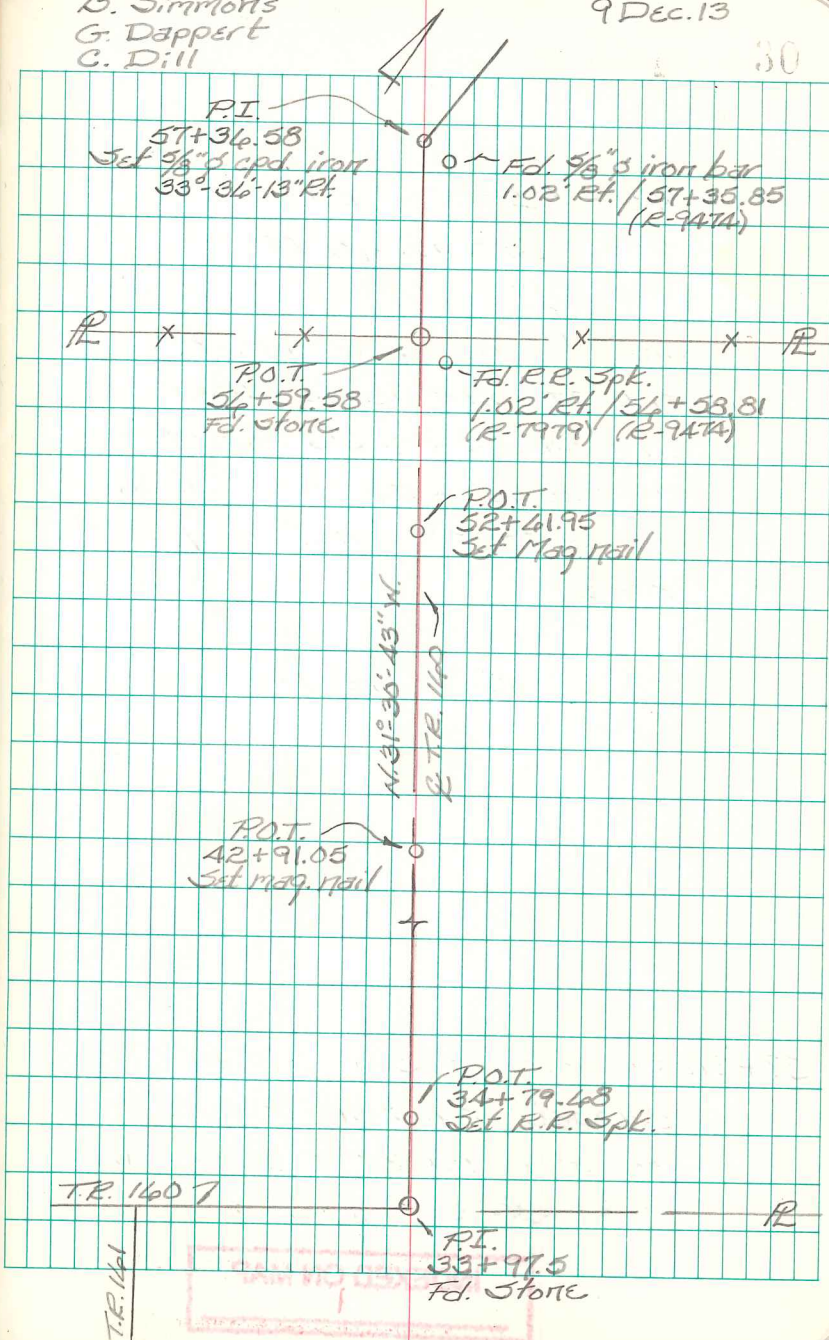 Simmons
9 Dec. 13
G. Dappert
C. Dill
30
P.I.
57+36.58
Set 5/8"ø cpd. iron
33°-36'-13" Rt.
Fd. 5/8"ø iron bar
1.02' Rt. / 57+35.85
(R-9474)
PL x x x x PL
P.O.T.
56+59.58
Fd. Stone
Fd. R.R. Spk.
1.02' Rt. / 56+58.81
(R-7979) (R-9474)
P.O.T.
52+61.95
Set Mag nail
N. 31°-30'-43" W.
℄ T.R. 160
P.O.T.
42+91.05
Set mag. nail
P.O.T.
34+79.68
Set R.R. Spk.
T.R. 160
PL
P.I.
33+97.5
Fd. Stone
T.R. 161